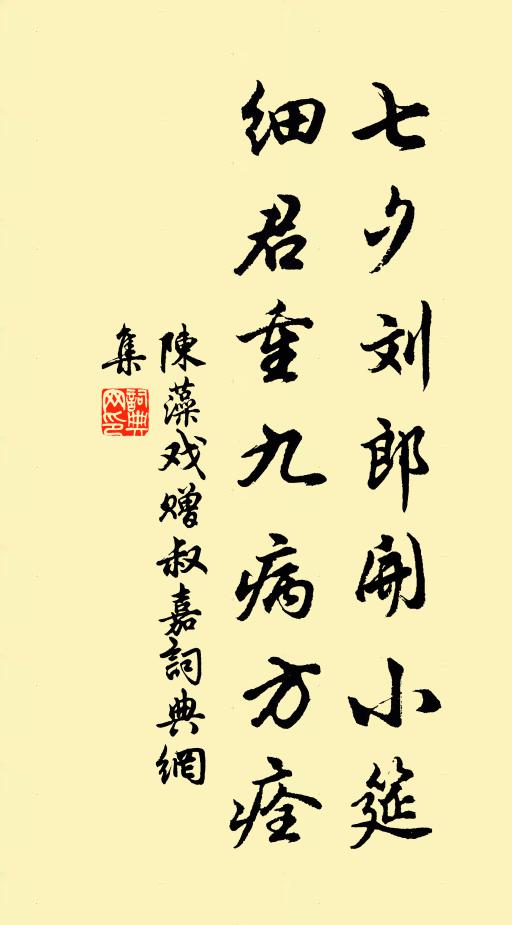 七夕刘郎開小筵
细君重九病方痊
陳藻戏赠叔嘉詞典網
集
詞典网印